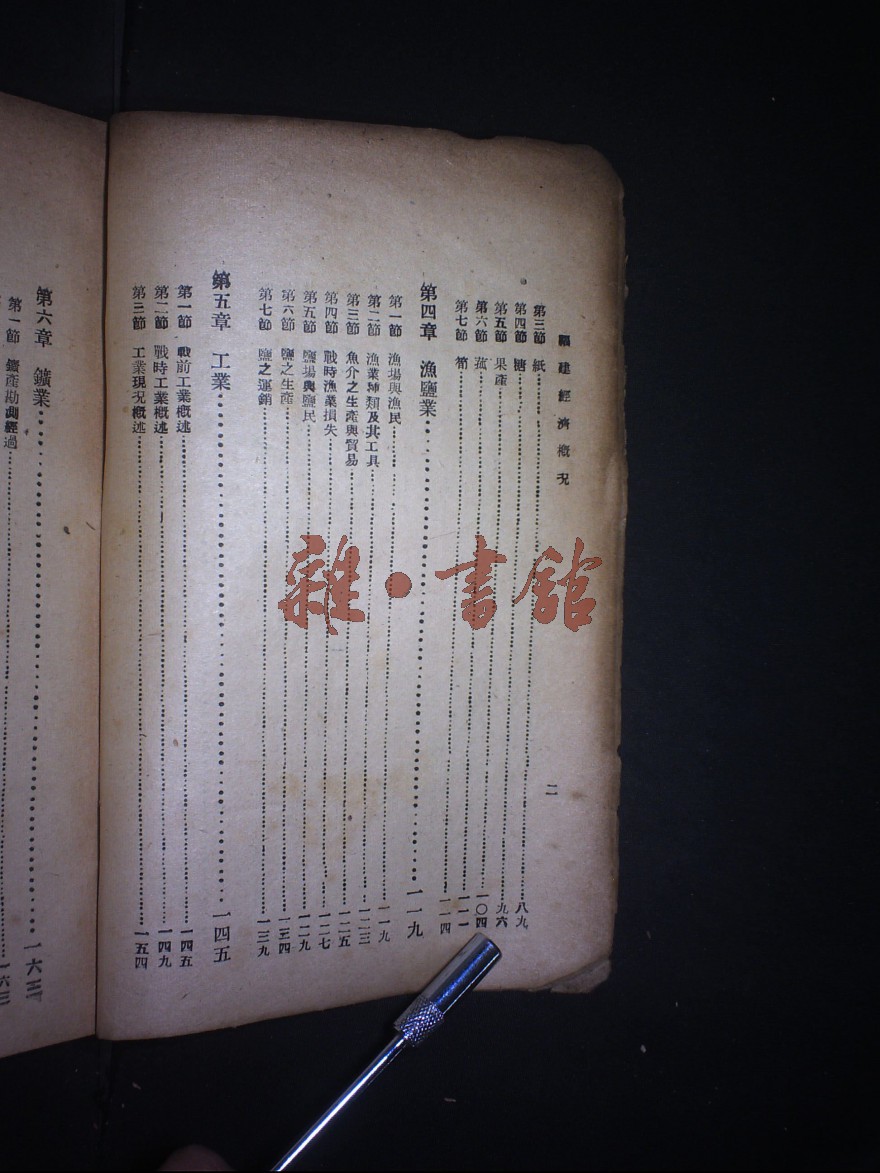 福建經濟概況 二
第三節 紙……八九
第四節 糖……九六
第五節 果產……一〇四
第六節 菰……一一一
第七節 筍……一一四
第四章 漁鹽業……一一九
第一節 漁場與漁民……一一九
第二節 漁業種類及其工具……一二三
第三節 魚介之生產與貿易……一二五
第四節 戰時漁業損失……一二七
第五節 鹽場與鹽民……一二九
第六節 鹽之生產……一三四
第七節 鹽之運銷……一三九
第五章 工業……一四五
第一節 戰前工業概述……一四五
第二節 戰時工業概述……一四九
第三節 工業現況概述……一五四
第六章 鑛業……一六三
第一節 鑛產勘測經過……一六三
雜·書館